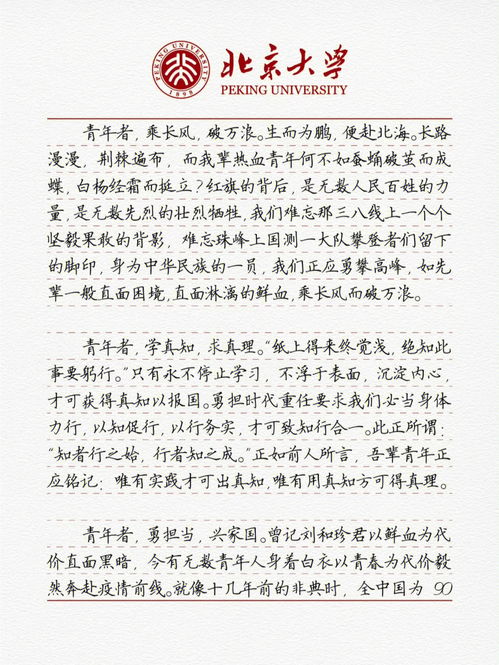 PEKING UNIVERSITY
1898
北京大学
PEKING UNIVERSITY
青年者，乘长风，破万浪。生而为鹏，便赴北海。长路
漫漫，荆棘遍布，而我辈热血青年何不如蚕蛹破茧而成
蝶，白杨经霜而挺立？红旗的背后，是无数人民百姓的力
量，是无数先烈的壮烈牺牲，我们难忘那三八线上一个个
坚毅果敢的背影，难忘珠峰上国测一大队攀登者们留下
的脚印，身为中华民族的一员，我们正应勇攀高峰，如先
辈一般直面困境，直面淋漓的鲜血，乘长风而破万浪。
青年者，学真知，求真理。“纸上得来终觉浅，绝知此
事要躬行。”只有永不停止学习，不浮于表面，沉淀内心，
才可获得真知以报国。勇担时代重任要求我们必当身体
力行，以知促行，以行务实，才可致知行合一。此正所谓：
“知者行之始，行者知之成。”正如前人所言，吾辈青年正
应铭记：唯有实践才可出真知，唯有用真知方可得真理。
青年者，勇担当，兴家国。曾记刘和珍君以鲜血为代
价直面黑暗，今有无数青年人身着白衣以青春为代价毅
然奔赴疫情前线。就像十几年前的非典时，全中国为 90